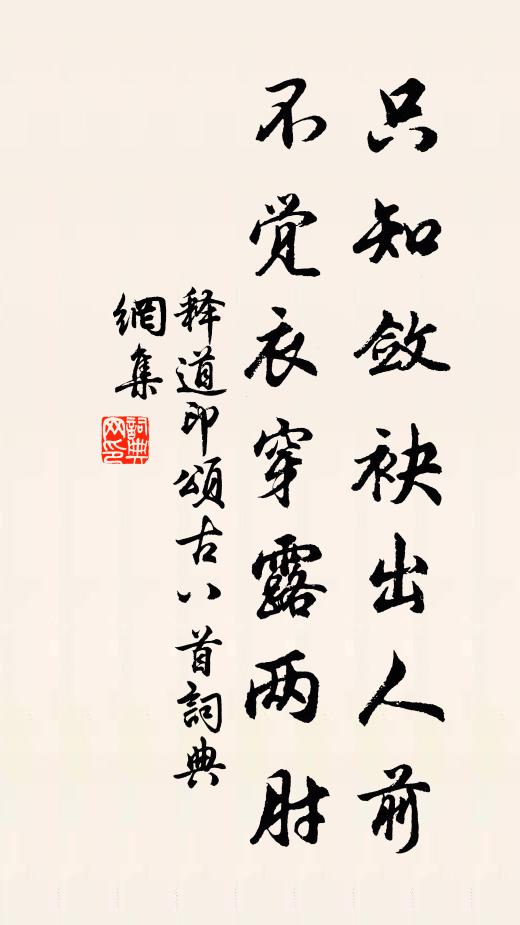 只知斂袂出人前
不觉衣穿露两肘
释道印頌古八首詞典
網集
詞典
网印